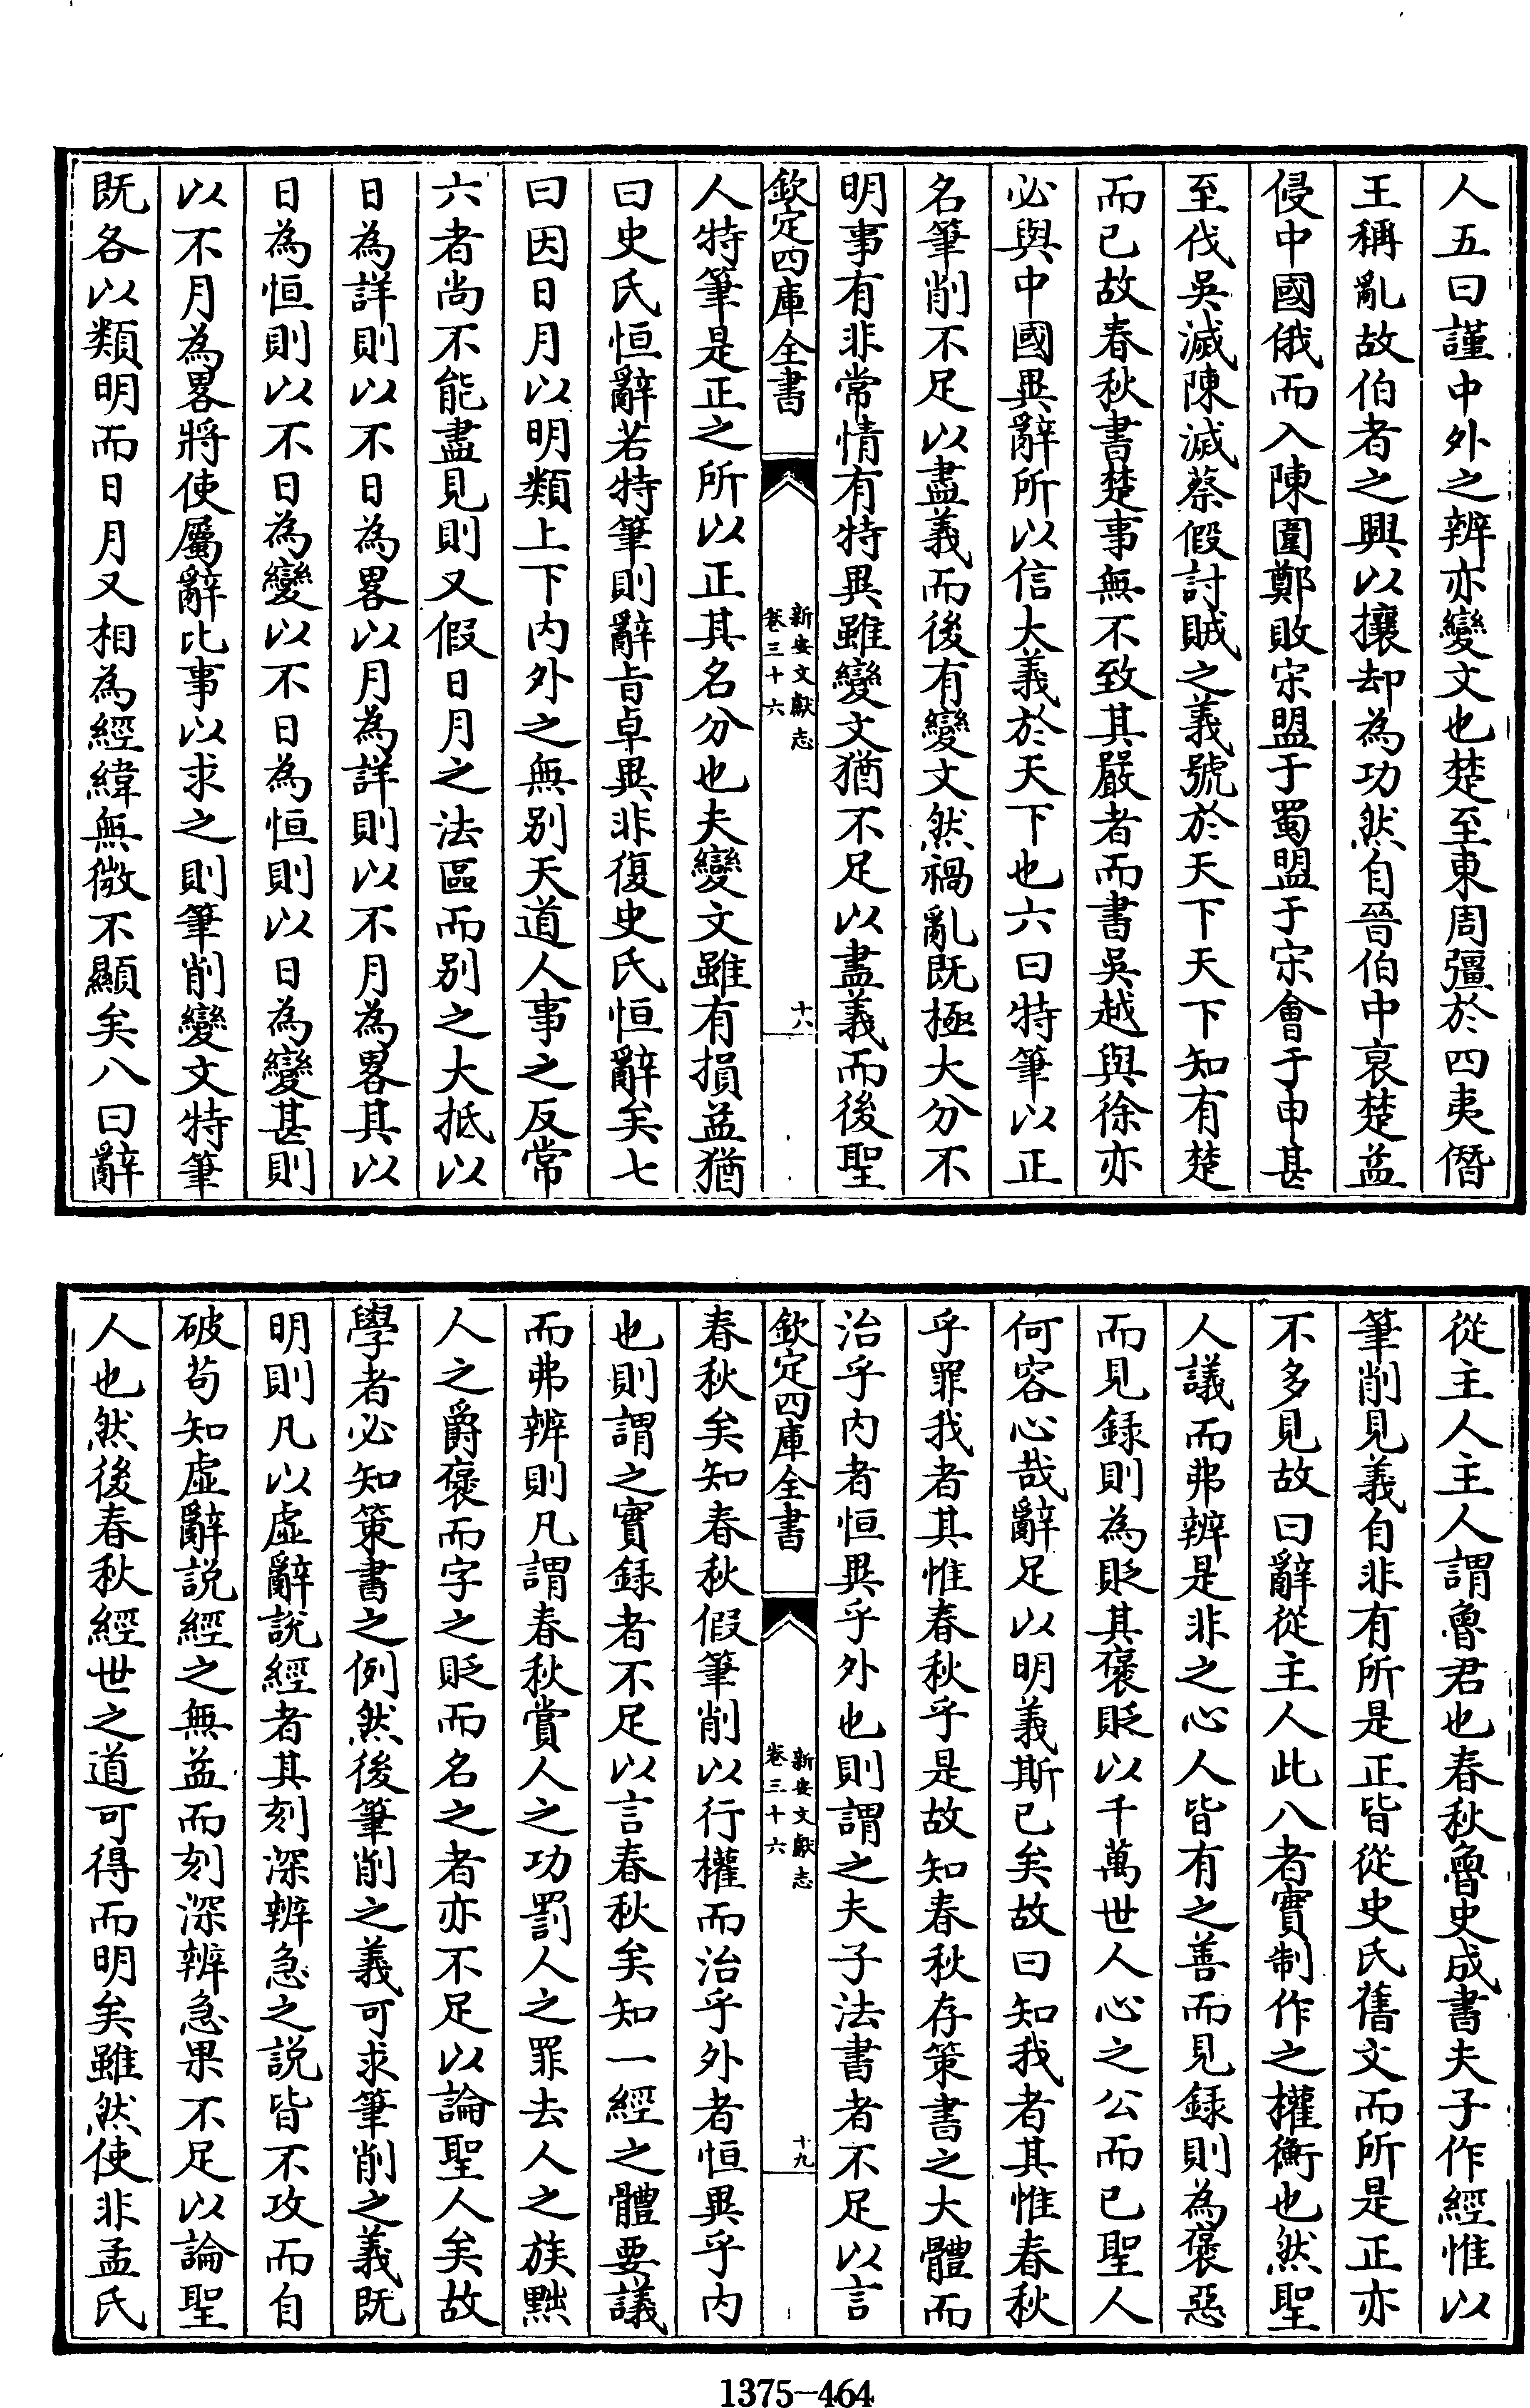 人五曰謹中外之辨亦變文也楚至東周彊於四夷僭
王稱亂故伯者之興以攘却為功然自晉伯中衰楚益
侵中國俄而入陳圍鄭敗宋盟于蜀盟于宋會于申甚
至伐吳滅陳滅蔡假討賊之義號於天下天下知有楚
而已故春秋書楚事無不致其嚴者而書吳越與徐亦
必與中國異辭所以信大義於天下也六曰特筆以正
名筆削不足以盡義而後有變文然禍亂既極大分不
明事有非常情有特異雖變文猶不足以盡義而後聖
欽定四庫全書
新安文獻志
卷三十六
十八
人特筆是正之所以正其名分也夫變文雖有損益猶
曰史氏恒辭若特筆則辭旨卓異非復史氏恒辭矣七
曰因日月以明類上下内外之無别天道人事之反常
六者尚不能盡見則又假日月之法區而别之大抵以
日為詳則以不日為畧以月為詳則以不月為畧其以
日為恒則以不日為變以不日為恒則以日為變甚則
以不月為畧將使屬辭比事以求之則筆削變文特筆
既各以類明而日月又相為經緯無微不顯矣八曰辭
從主人主人謂魯君也春秋魯史成書夫子作經惟以
筆削見義自非有所是正皆從史氏舊文而所是正亦
不多見故曰辭從主人此八者實制作之權衡也然聖
人議而弗辨是非之心人皆有之善而見録則為褒惡
而見録則為貶其褒貶以千萬世人心之公而已聖人
何容心哉辭足以明義斯已矣故曰知我者其惟春秋
乎罪我者其惟春秋乎是故知春秋存策書之大體而
治乎内者恒異乎外也則謂之夫子法書者不足以言
欽定四庫全書
新安文獻志
卷三十六
十九
春秋矣知春秋假筆削以行權而治乎外者恒異乎内
也則謂之實録者不足以言春秋矣知一經之體要議
而弗辨則凡謂春秋賞人之功罰人之罪去人之族黜
人之爵褒而字之貶而名之者亦不足以論聖人矣故
學者必知策書之例然後筆削之義可求筆削之義既
明則凡以虛辭說經者其刻深辨急之說皆不攻而自
破苟知虛辭說經之無益而刻深辨急果不足以論聖
人也然後春秋經世之道可得而明矣雖然使非孟氏
1375-464